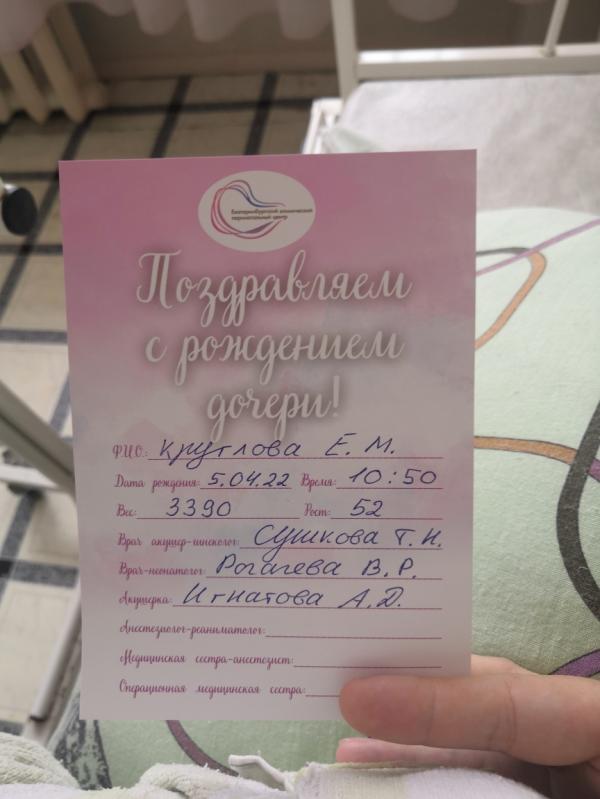 Екатеринбургский клинический
перинатальный центр
Поздравляем
с рождением
дочери!
Ф.И.О.: Круглова Е. М.
Дата рождения: 5.04.22 Время: 10:50
Вес: 3390 Рост: 52
Врач акушер-гинеколог: Сушкова Т. Н.
Врач-неонатолог: Рогачева В. Р.
Акушерка: Игнатова А.Д.
Анестезиолог-реаниматолог:
Медицинская сестра-анестезист:
Операционная медицинская сестра: